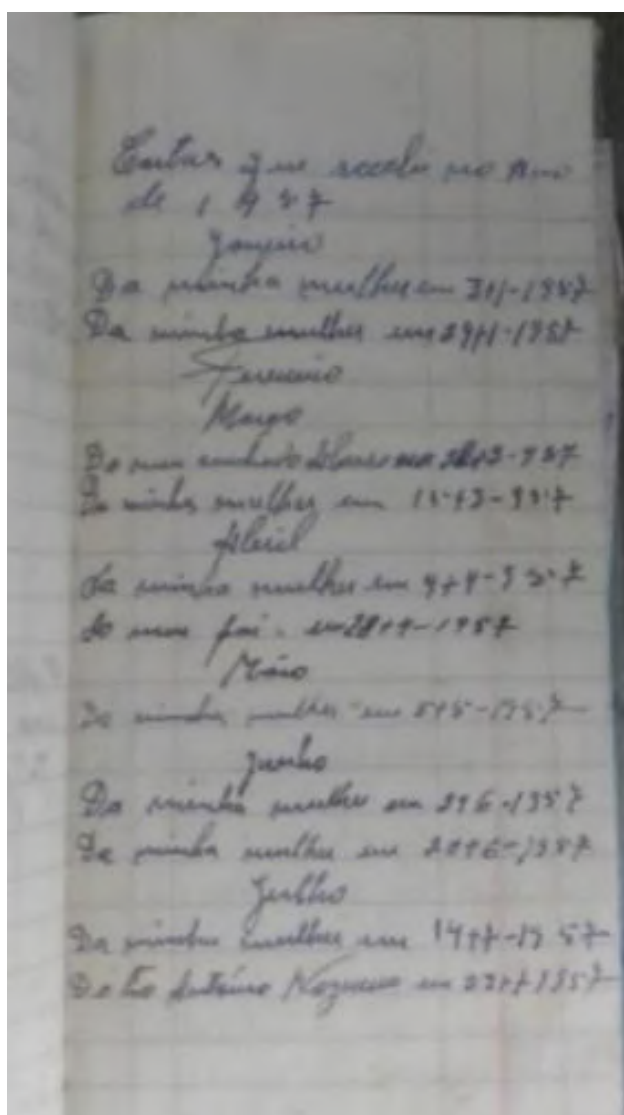 Cartas que recebi no Ano
de 1957
Janeiro
Da minha mulher em 3+1-1957
Da minha mulher em 29+1-1957
Fevereiro
Março
Do meu cunhado em +3-957
Da minha mulher em 15+3-957
Abril
Da minha mulher em 4+4-957
do meu pai. em 28+4-1957
Máio
Da minha mulher em 5+5-1957
Junho
Da minha mulher em 2+6-1957
Da minha mulher em 20+6-1957
Julho
Da minha mulher em 14+7-1957
Do tio António em +7 1957